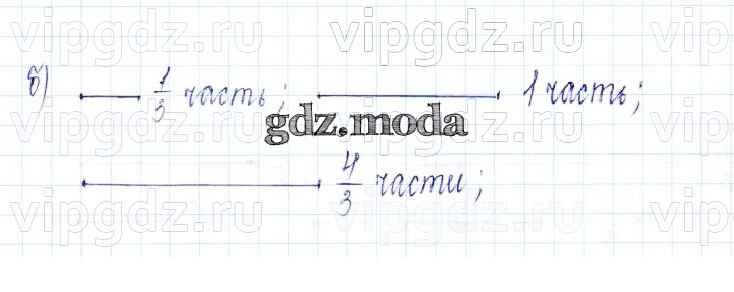 vipgdz.ru vipgdz.ru vipg
б) 1/3 часть; 1 часть;
vipgdz.ru vipgdz.ru vipg
gdz.moda
4/3 части;
vipgdz.ru vipgdz.ru vipg